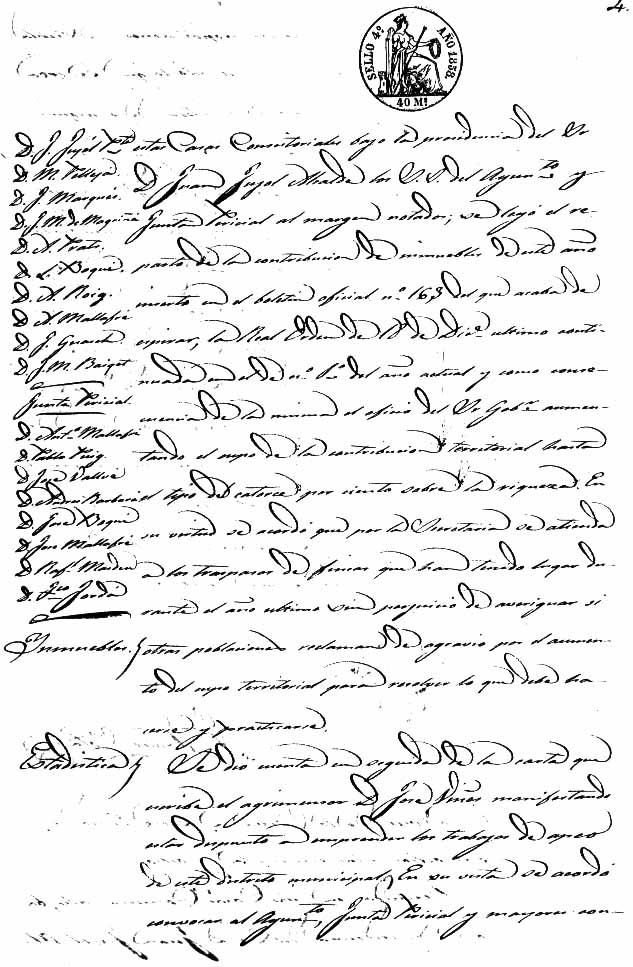 4.
SELLO 4º AÑO 1858
40 Ms
D. J. Jujol Pte
D. M. Pellejà
D. J. Marqués
D. J. M. de Magriñá
D. A. Prats
D. L. Boqué
D. A. Roig
D. A. Mallafré
D. J. Guasch
D. J. M. Baiget
Junta Pericial
D. Antº Mallafré
D. Pablo Roig
D. José Vallvé
D. Andrés Barberá
D. José Boqué
D. José Mallafré
D. Rafl
D. Fco Jordá
estas Casas Consistoriales bajo la presidencia del Sr
D. Juan Jujol Alcalde los S.S. del Ayunto y
Junta Pericial al margen notados, se leyó el re-
parto de la contribucion de inmuebles de este año
inserto en el boletin oficial nº 163 del que acaba de
espirar, la Real Orden de 1º de Dice ultimo conti-
nuada en el de nº 1º del año actual y como conse-
cuencia de la misma el oficio del Sr Gobr aumen-
tando el cupo de la contribucion territorial hasta
el tipo del catorce por ciento sobre la riqueza. En
su virtud se acordó que por la Secretaria se atienda
a los traspasos de fincas que han tenido lugar du-
rante el año ultimo sin perjuicio de averiguar si
Inmuebles. } otras poblaciones reclaman de agravio por el aumen-
to del cupo territorial para resolver lo que deba ha-
cerse y practicarse.
Estadistica } Se dió cuenta en seguida de la carta que
escribe el agrimensor D. José Viñas manifestando
estar dispuesto a emprender los trabajos de apeo
de este distrito municipal, En su vista se acordó
convocar al Ayunto, Junta Pericial y mayores con-